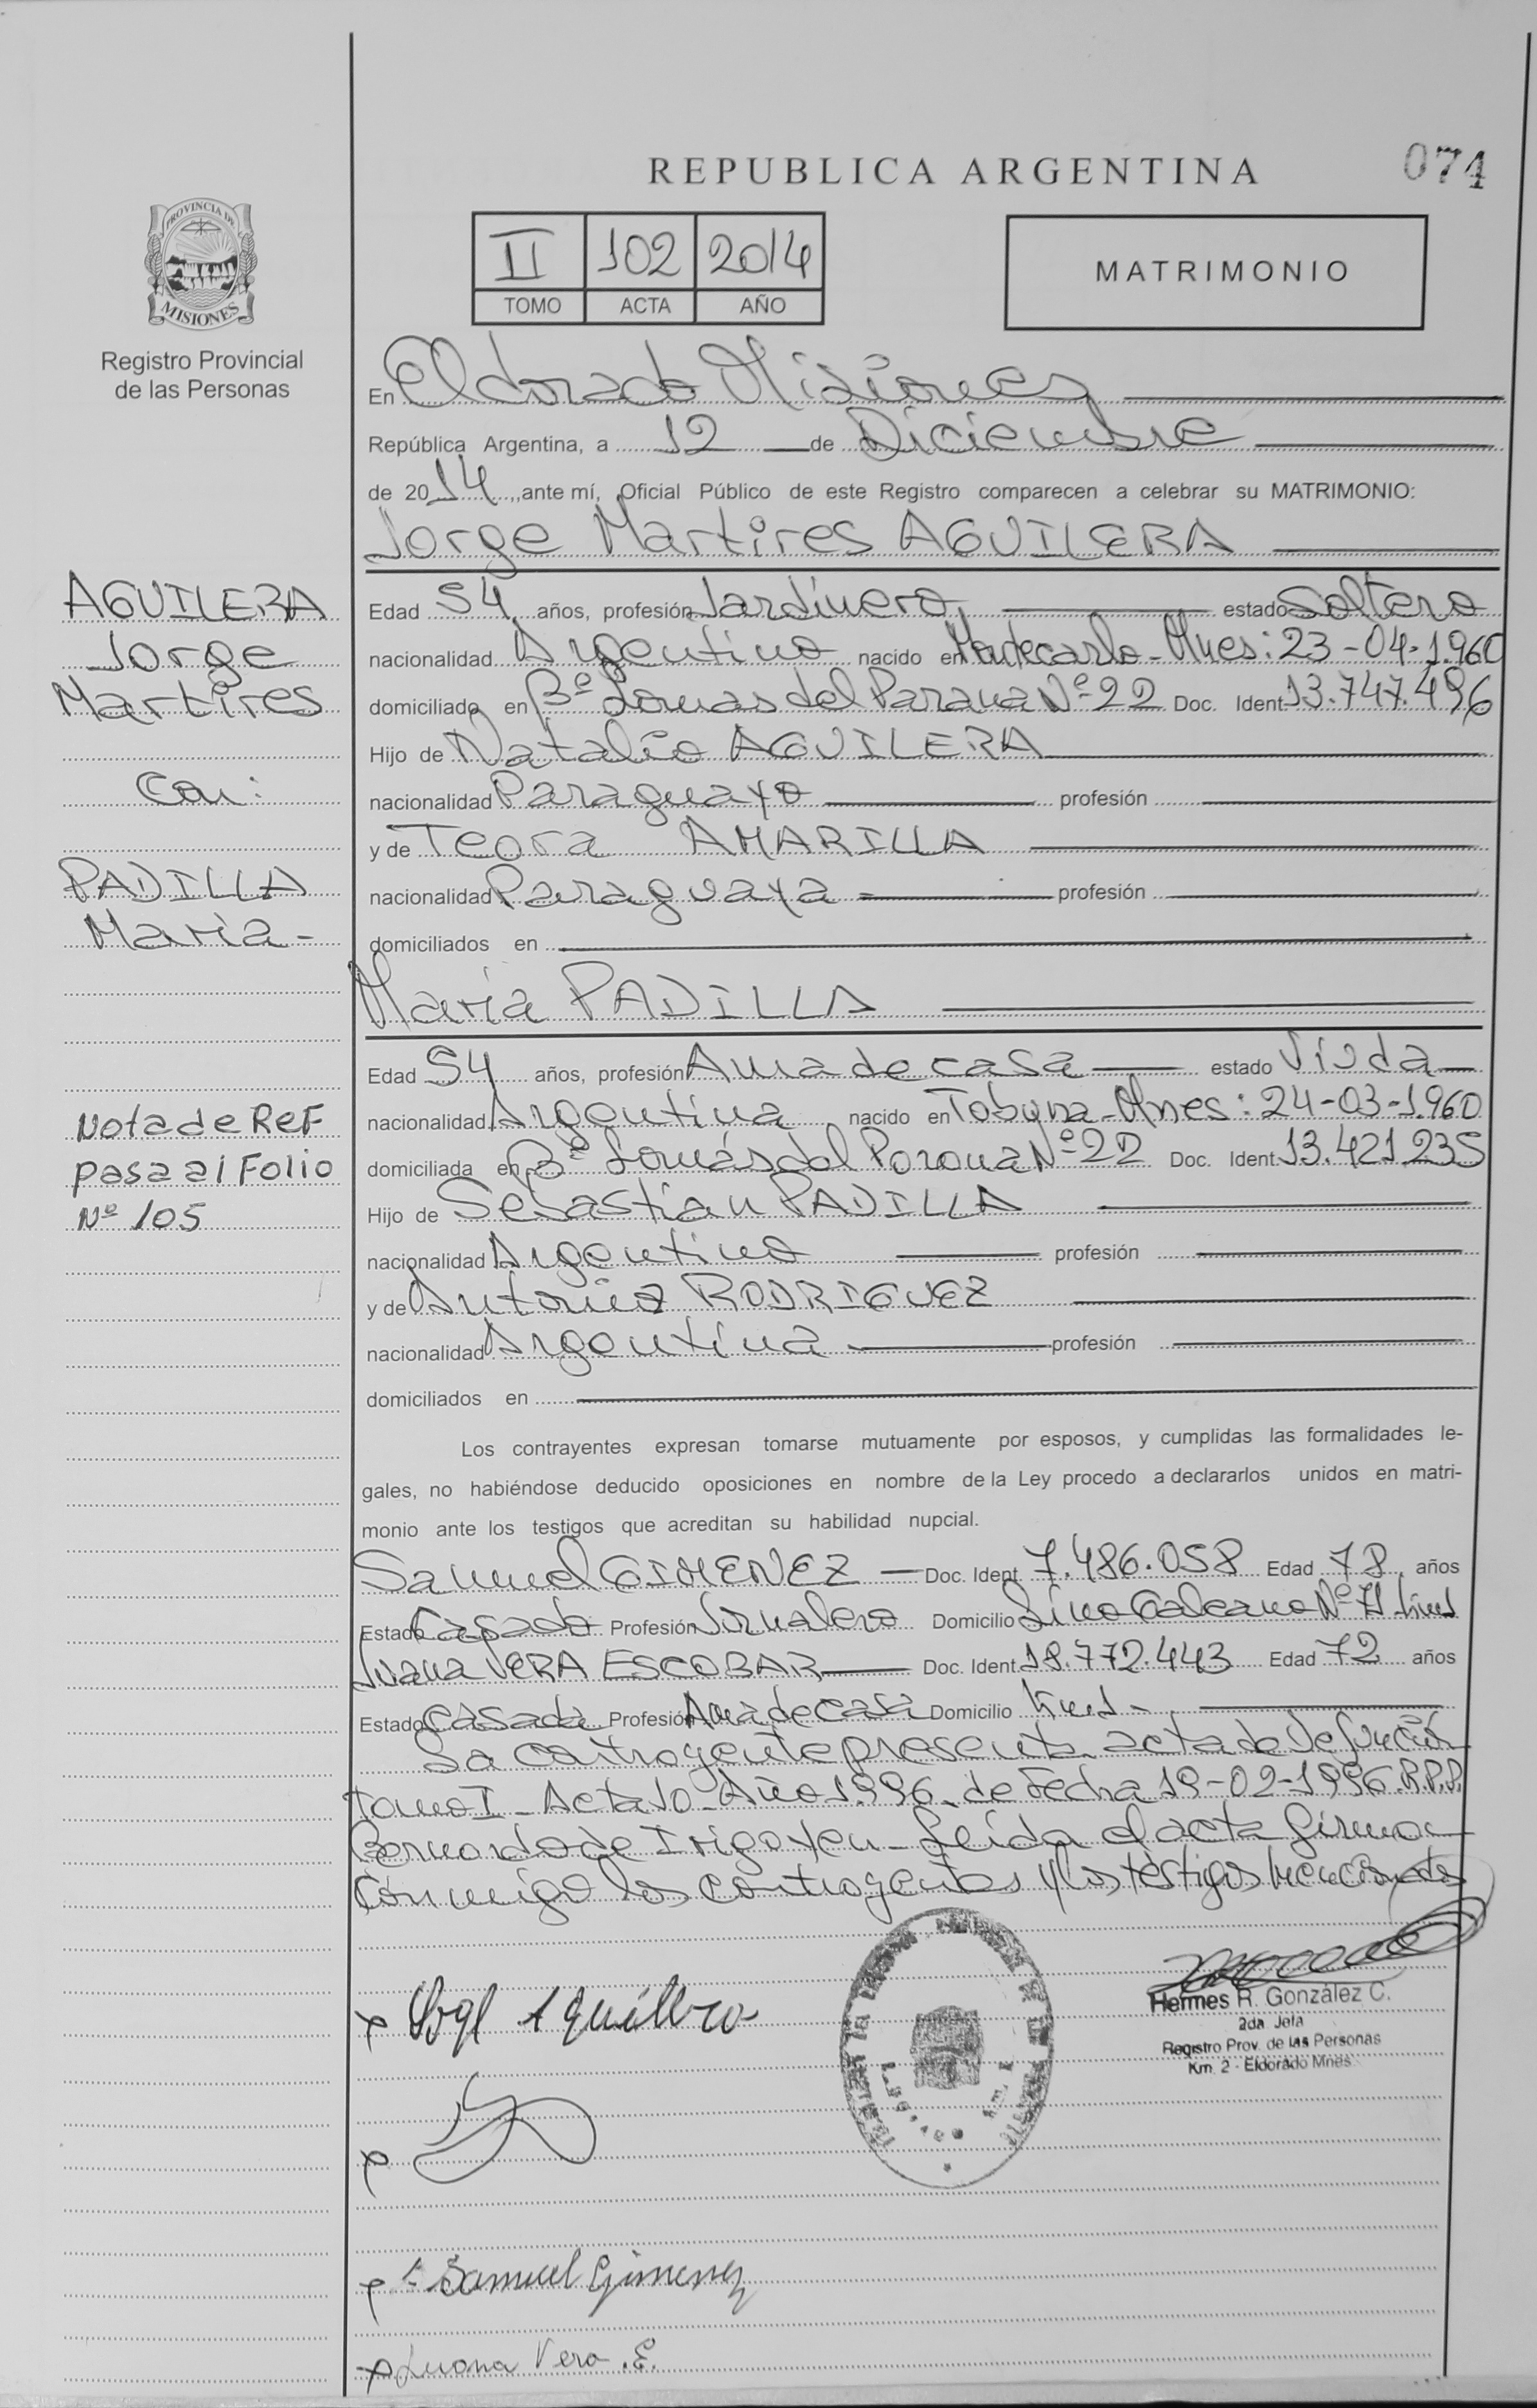 074
REPUBLICA ARGENTINA
PROVINCIA DE
MISIONES
Registro Provincial
de las Personas
II 102 2014
TOMO ACTA AÑO
MATRIMONIO
En Eldorado Misiones
República Argentina, a 12 de Diciembre
de 2014, ante mí, Oficial Público de este Registro comparecen a celebrar su MATRIMONIO:
Jorge Martires AGUILERA
AGUILERA
Jorge
Martires
Con:
PADILLA
Maria-
Nota de Ref
pasa al Folio
Nº 105
Edad 54 años, profesión Jardinero, estado Soltero
nacionalidad Argentino nacido en Montecarlo-Mnes: 23-04-1.960
domiciliado en Bº Lomas del Parana Nº 22 Doc. Ident 13.747.496
Hijo de Natalio AGUILERA
nacionalidad Paraguayo profesión
y de Teora AMARILLA
nacionalidad Paraguaya profesión
domiciliados en
Maria PADILLA
Edad 54 años, profesión Ama de casa estado Viuda
nacionalidad Argentina nacido en Tobuna-Mnes: 24-03-1.960
domiciliada en Bº Lomas del Parana Nº 22 Doc. Ident 13.421.235
Hijo de Sebastian PADILLA
nacionalidad Argentino profesión
y de Antonia RODRIGUEZ
nacionalidad Argentina profesión
domiciliados en
Los contrayentes expresan tomarse mutuamente por esposos, y cumplidas las formalidades le-
gales, no habiéndose deducido oposiciones en nombre de la Ley procedo a declararlos unidos en matri-
monio ante los testigos que acreditan su habilidad nupcial.
Samuel GIMENEZ Doc. Ident 7.486.058 Edad 78 años
Estado Casado Profesión Jornalero Domicilio Lino Galeano Nº 71
Juana VERA ESCOBAR Doc. Ident 18.772.443 Edad 72 años
Estado Casada Profesión Ama de casa Domicilio
La contrayente presenta acta de Defunción
Tomo I-Acta 10-Año 1.996. de Fecha 19-02-1996. R.P.P.
Bernardo de Irigoyen-Leida el acta firman
conmigo los contrayentes y los testigos mencionados
Hermes R. González C.
2da. Jefa
Registro Prov. de las Personas
Km. 2 - Eldorado Mnes.
Samuel Gimenez
Juana Vera .E.